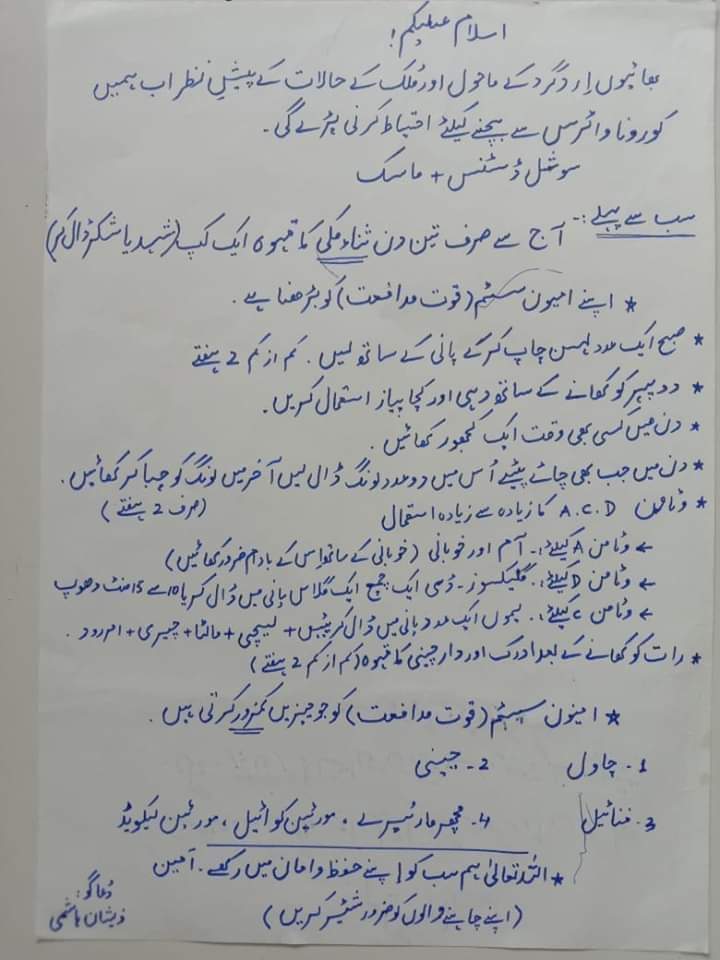 اسلام علیکم!
بھائیوں اِردگرد کے ماحول اور مُلک کے حالات کے پیشِ نظر اب ہمیں
کورونا وائرس سے بچنے کیلئے احتیاط کرنی پڑے گی۔
سوشل ڈسٹنس + ماسک
سب سے پہلے :- آج سے صرف تین دن ثناء مکی کا قہوہ ایک کپ (شہد یا شکر ڈال کر)
* اپنے امیون سسٹم (قوت مدافعت) کو بڑھنا ہے۔
* صبح ایک عدد لہسن چاپ کر کے پانی کے ساتھ لیں۔ کم از کم 2 ہفتے
* دوپہر کو کھانے کے ساتھ دہی اور کچا پیاز استعمال کریں۔
* دن میں کسی بھی وقت ایک کھجور کھائیں۔
* دن میں جب بھی چائے پیئے اُس میں دو عدد لونگ ڈال لیں آخر میں لونگ کو چبا کر کھائیں۔
(صرف 2 ہفتے)
* وٹامن A.C.D کا زیادہ سے زیادہ استعمال
← وٹامن A کیلئے:- آم اور خوبانی (خوبانی کے ساتھ اس کے بادام ضرور کھائیں)
← وٹامن D کیلئے:- گلیکسوز-ڈی ایک چمچ ایک گلاس پانی میں ڈال کر یا 10 سے 15 منٹ دھوپ
← وٹامن C کیلئے:- لیموں ایک عدد پانی میں ڈال کر پیئیں + لیچی + مالٹا + چیری + امرود۔
* رات کو کھانے کے بعد ادرک اور دارچینی کا قہوہ (کم از کم 2 ہفتے)
* امیون سسٹم (قوت مدافعت) کو جو چیزیں کمزور کرتی ہیں۔
1- چاول 2- چینی
3- فنائیل 4- مچھر مار سپرے، مورٹین کوائیل، مورٹین لیکویڈ
* اللہ تعالیٰ ہم سب کو اپنے حفظ و امان میں رکھے۔ آمین
(اپنے چاہنے والوں کو ضرور شئیر کریں)
دُعا گو:
ذیشان ہاشمی